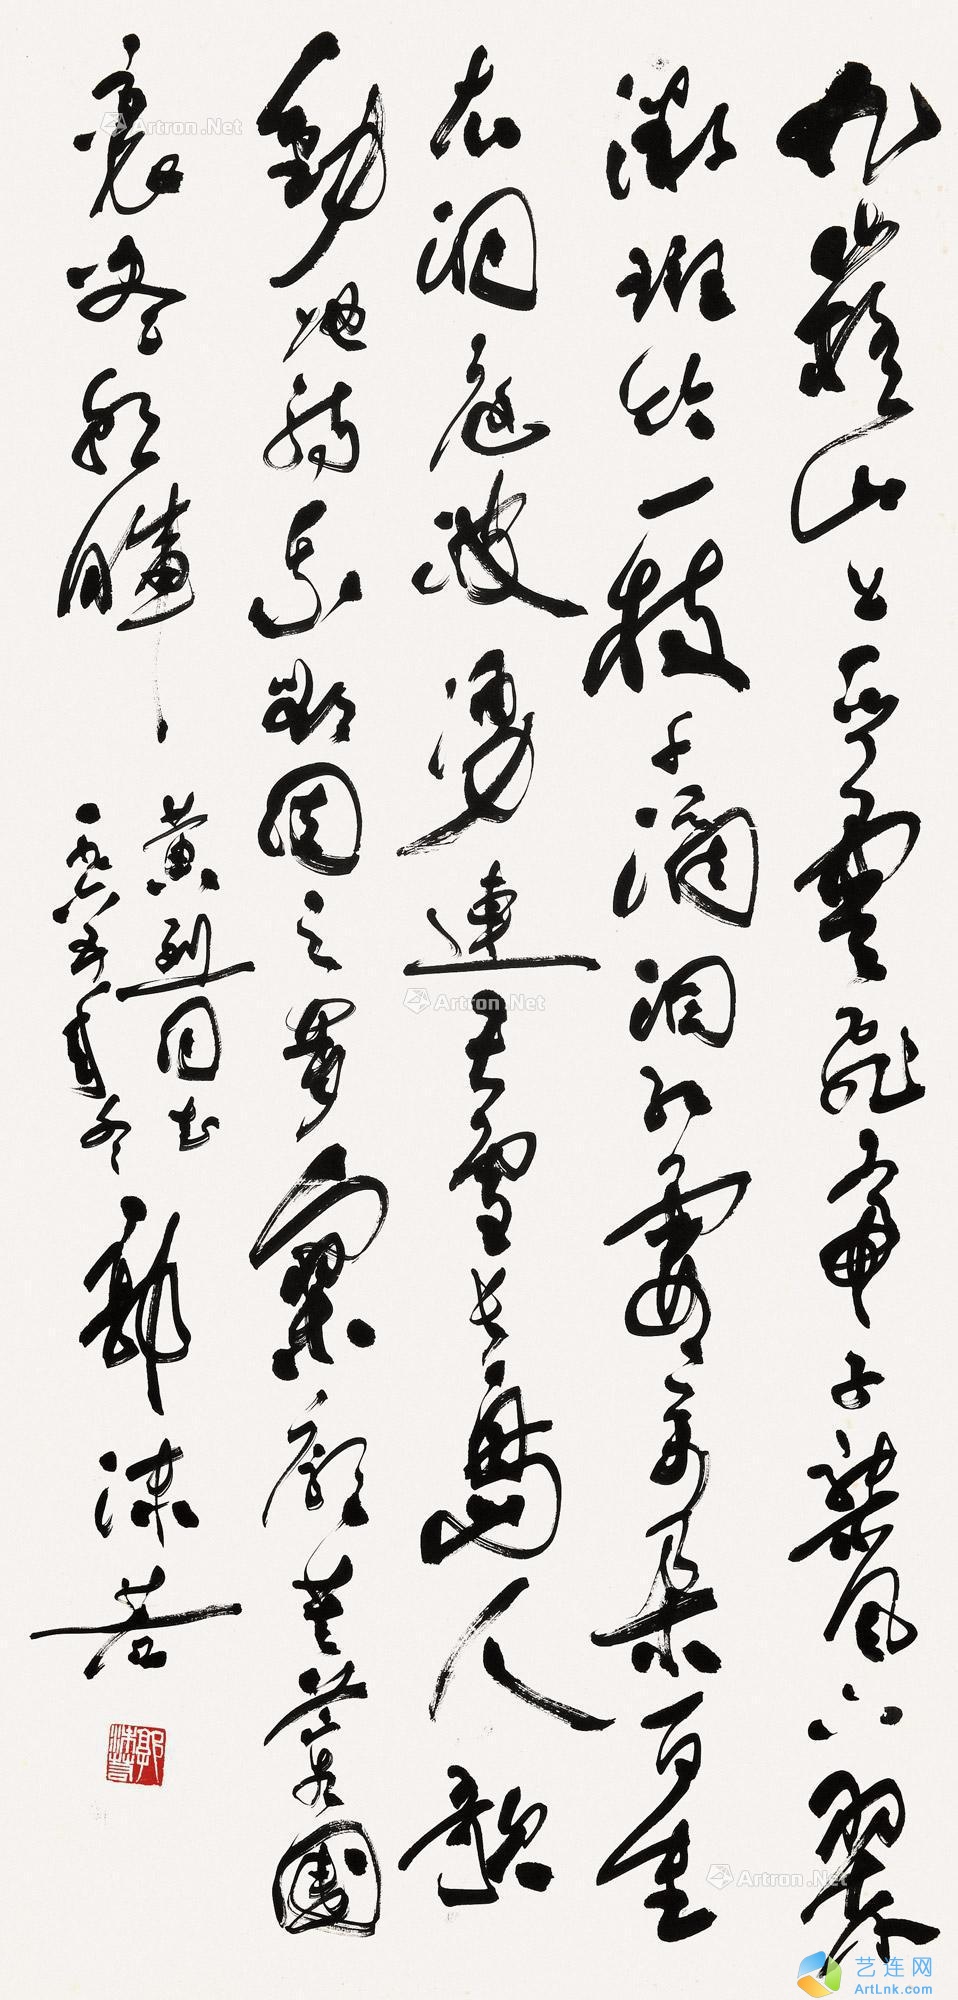 九嶷山上白雲飛帝子乘風下翠
微斑竹一枝千滴淚紅霞萬朵百重
衣洞庭波湧連天雪長島人歌
動地詩我欲因之夢寥廓芙蓉國
裏盡朝暉
黄烈同志
一九六五年冬 郭沫若
郭沫若
Artron.Net
Artron.Net
Artron.Net
艺连网
ArtLnk.com